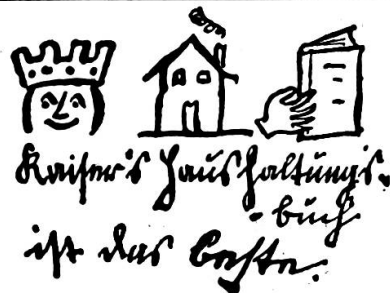 Kaiser's Haushaltungs-
- buch
ist das beste.